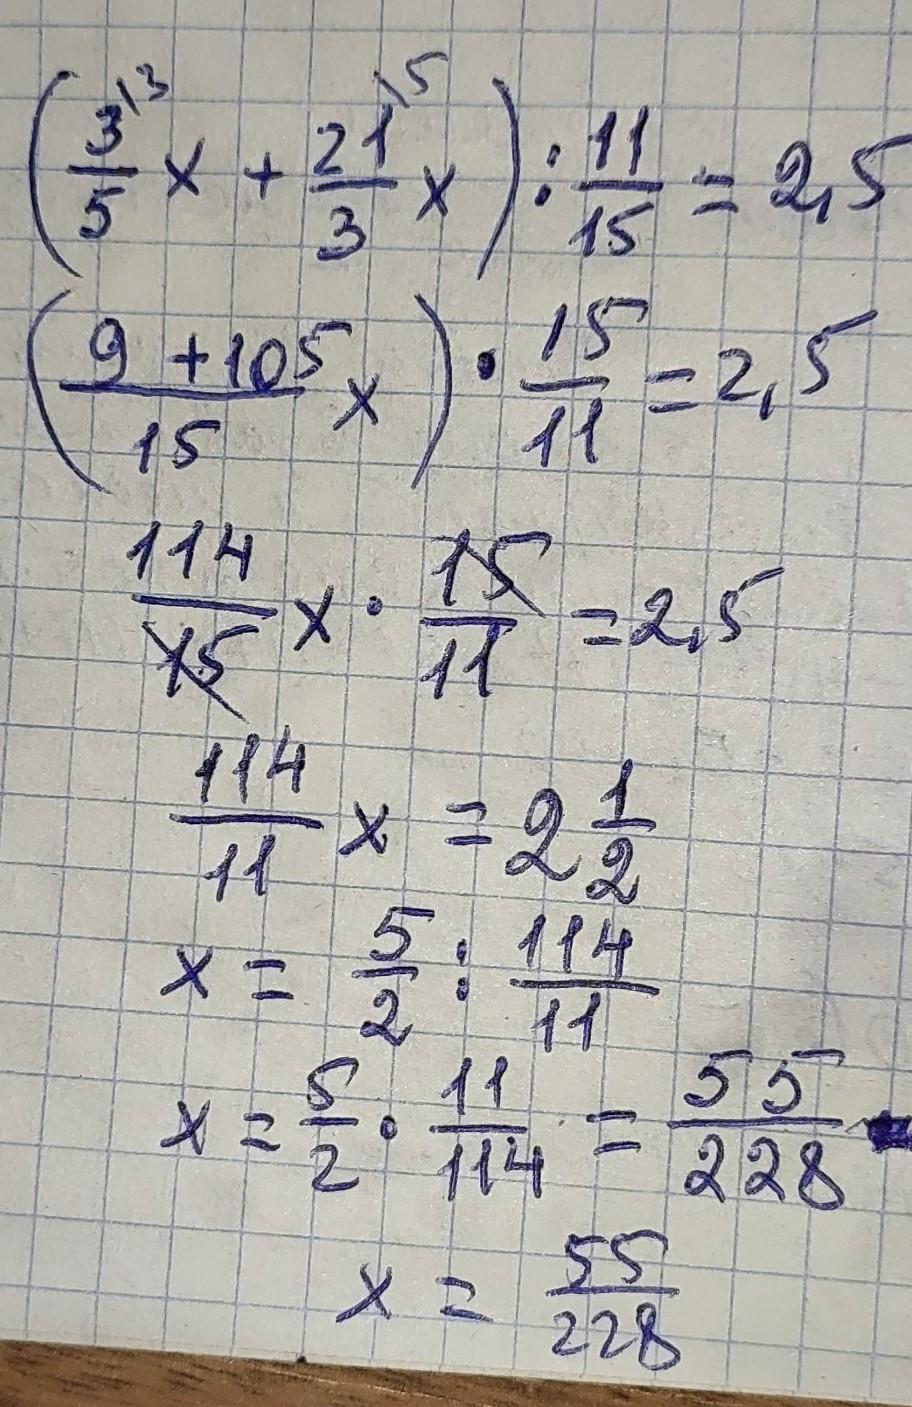 (3\3/5 x + 21\5/3 x) : 11/15 = 2,5
(9 + 105/15 x) · 15/11 = 2,5
114/15 x · 15/11 = 2,5
114/11 x = 2 1/2
x = 5/2 : 114/11
x = 5/2 · 11/114 = 55/228
x = 55/228